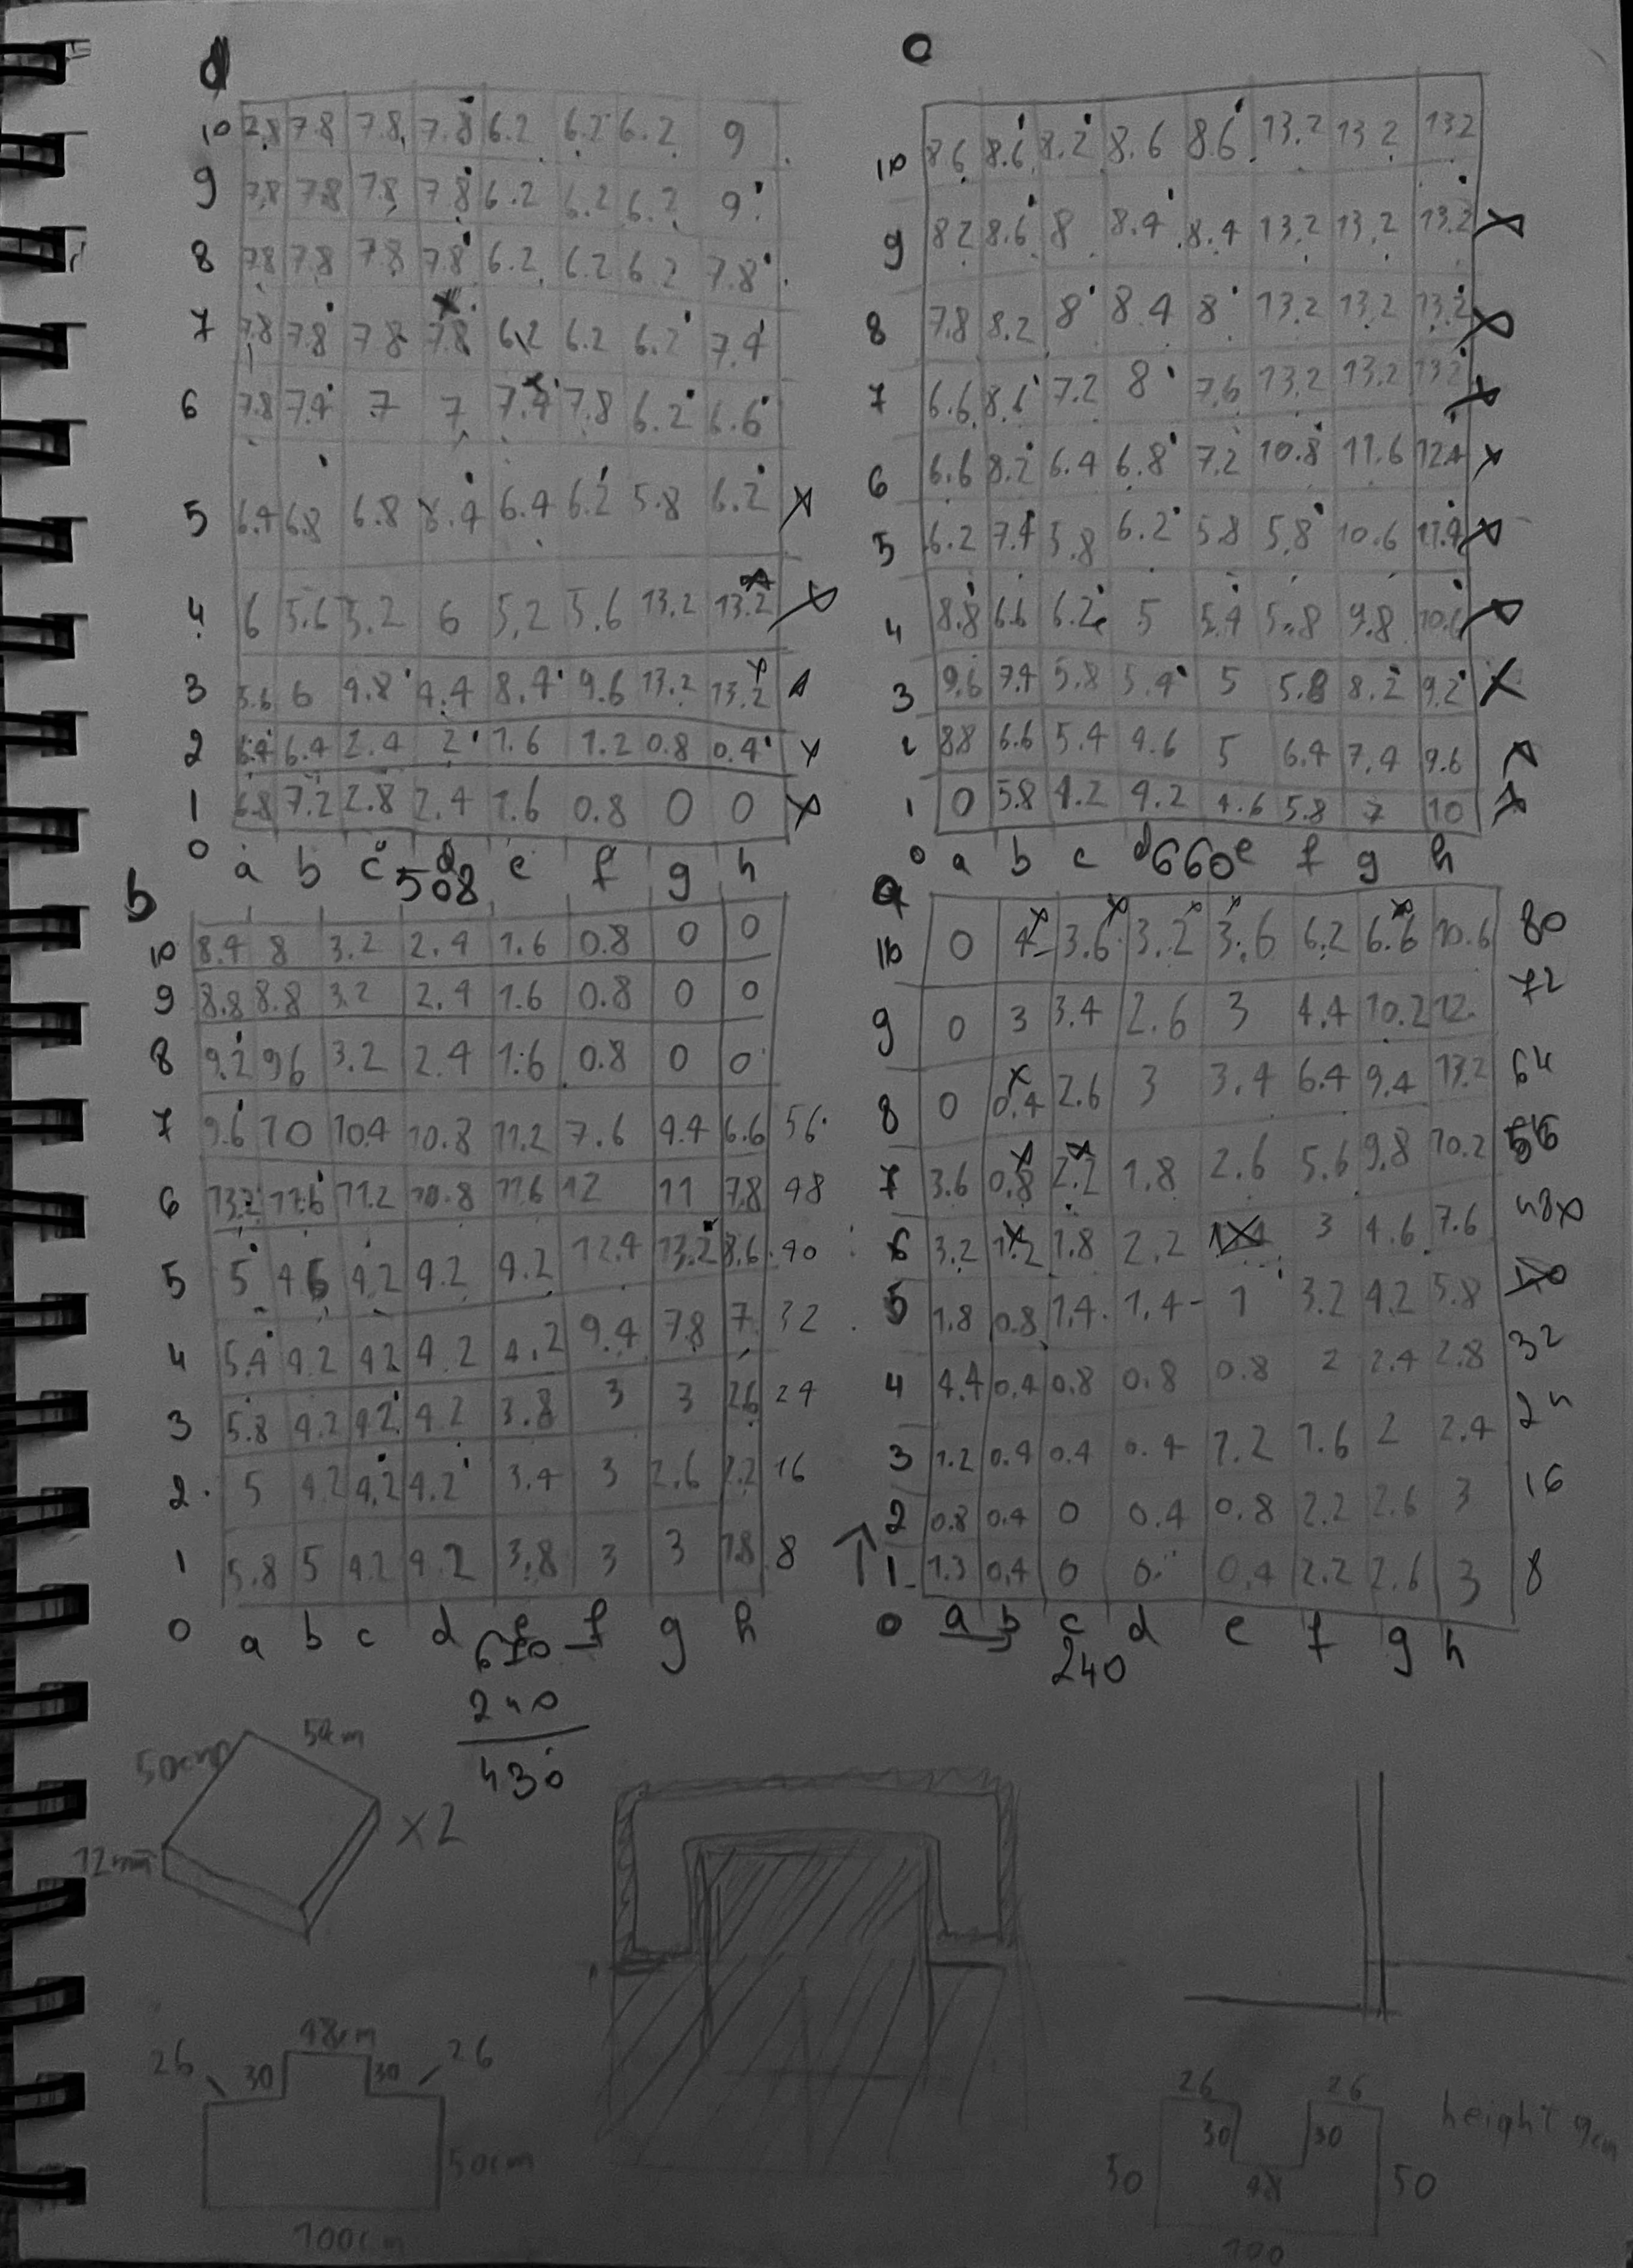 d
10 7.8 7.8 7.8 7.8 6.2 6.2 6.2 9
9 7.8 7.8 7.8 7.8 6.2 6.2 6.2 9
8 7.8 7.8 7.8 7.8 6.2 6.2 6.2 7.8
7 7.8 7.8 7.8 7.8 6.2 6.2 6.2 7.4
6 7.8 7.4 7 7 7.4 7.8 6.2 6.6
5 6.4 6.8 6.8 6.4 6.2 5.8 6.2 x
4 6 5.6 5.2 6 5.2 5.6 13.2 13.2 x
3 5.6 6 4.8 4.4 8.4 9.6 13.2 13.2
2 6.4 6.4 2.4 2 1.6 1.2 0.8 0.4 x
1 6.8 7.2 2.8 2.4 1.6 0.8 0 0 x
0 a b c d e f g h
508
c
10 8.6 8.6 8.2 8.6 8.6 13.2 13.2 13.2
9 8.2 8.6 8 8.4 8.4 13.2 13.2 13.2 x
8 7.8 8.2 8 8.4 8 13.2 13.2 13.2 x
7 6.6 8.6 7.2 8 7.6 13.2 13.2 13.2 x
6 6.6 8.2 6.4 6.8 7.2 10.8 11.6 12.4 x
5 6.2 7.4 5.8 6.2 5.8 5.8 10.6 11.4 x
4 8.8 6.6 6.2 5 5.4 5.8 9.8 10.6 x
3 9.6 7.4 5.8 5.4 5 5.8 8.2 9.2 x
2 8.8 6.6 5.4 4.6 5 6.4 7.4 9.6 x
1 0 5.8 4.2 4.2 4.6 5.8 7 10 x
0 a b c d e f g h
660
b
10 8.4 8 3.2 2.4 1.6 0.8 0 0
9 8.8 8.8 3.2 2.4 1.6 0.8 0 0
8 9.2 9.6 3.2 2.4 1.6 0.8 0 0
7 9.6 10 10.4 10.8 11.2 7.6 4.4 6.6 56
6 13.2 11.6 11.2 10.8 11.6 12 11 7.8 48
5 5 4.6 4.2 4.2 4.2 12.4 13.2 8.6 40
4 5.4 4.2 4.2 4.2 4.2 9.4 7.8 7 32
3 5.8 4.2 4.2 4.2 3.8 3 3 2.6 24
2 5 4.2 4.2 4.2 3.4 3 2.6 2.2 16
1 5.8 5 4.2 4.2 3.8 3 3 8
0 a b c d e f g h
670
240
430
a
10 0 4 3.6 3.2 3.6 6.2 6.6 10.6 80
9 0 3 3.4 2.6 3 4.4 10.2 12 72
8 0 0.4 2.6 3 3.4 6.4 9.4 13.2 64
7 3.6 0.8 2.2 1.8 2.6 5.6 9.8 10.2 56
6 3.2 1.2 1.8 2.2 3 4.6 7.6 48x
5 1.8 0.8 1.4 1.4 1 3.2 4.2 5.8 40
4 4.4 0.4 0.8 0.8 0.8 2 2.4 2.8 32
3 1.2 0.4 0.4 0.4 1.2 1.6 2 2.4 24
2 0.8 0.4 0 0.4 0.8 2.2 2.6 3 16
1 1.3 0.4 0 0 0.4 2.2 2.6 3 8
0 a b c d e f g h
240
50cm 50cm
12mm
x2
48cm
26 30 30 26
50cm
100cm
26 26
30 30
48
50 50
100
height 9cm